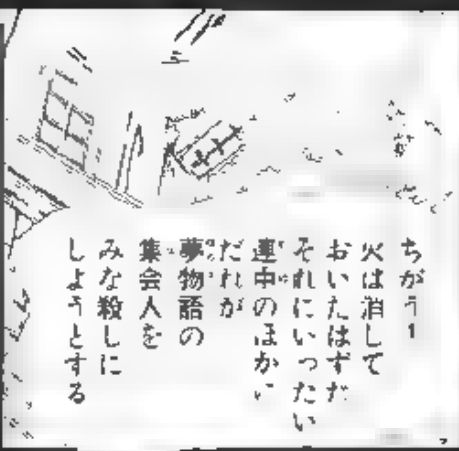 ちがう!
火は消して
おいたはずだ
それにいったい
連中のほかに
だれが
夢物語の
集会人を
みな殺しに
しようとする